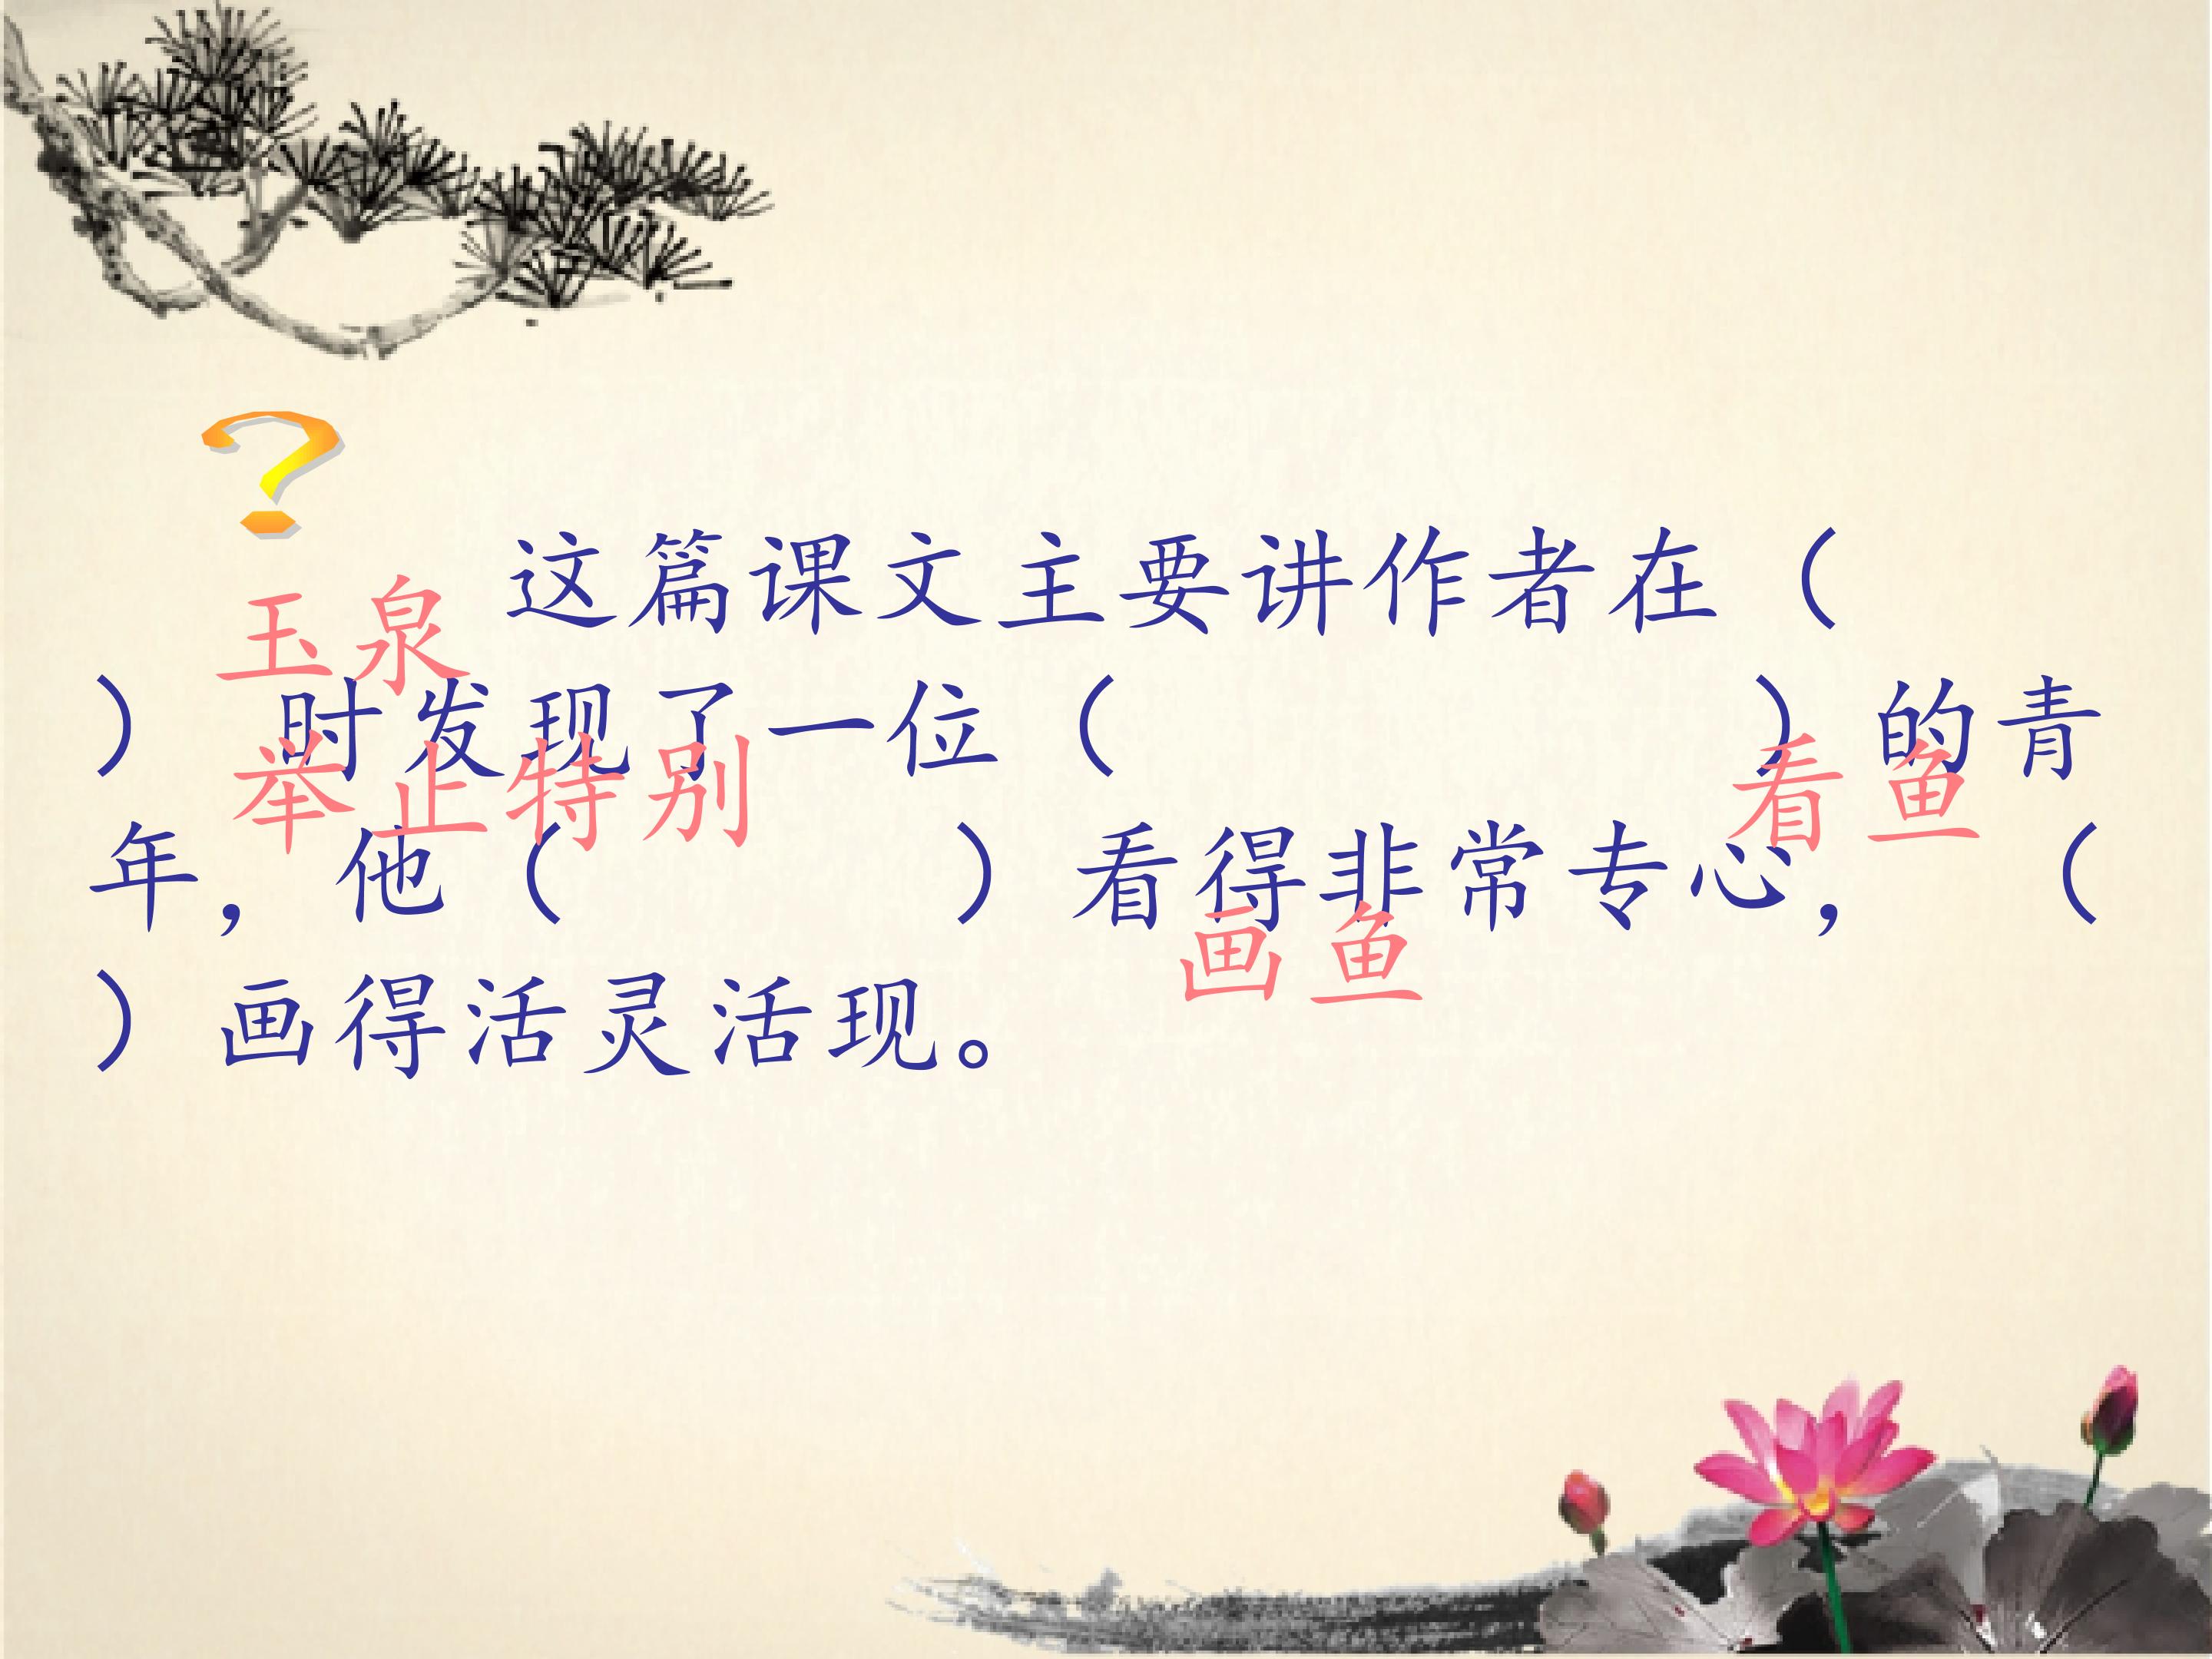 ?
这篇课文主要讲作者在（
玉泉
） 时发现了一位（ ）的青
举止特别 看鱼
年，他（ ）看得非常专心， （
画鱼
）画得活灵活现。